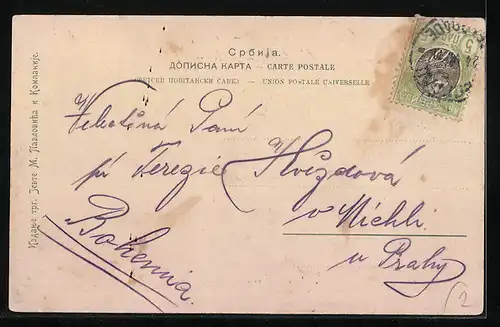 Србија.
ДОПИСНА КАРТА — CARTE POSTALE
СВЕТСКИ ПОШТАНСКИ САВЕЗ — UNION POSTALE UNIVERSELLE
Издање трг. Јевте М. Павловића и Компаније.
5
Velectěná Paní
pí Terezie Hvízdová
v Michli
u Prahy
Bohemia
2